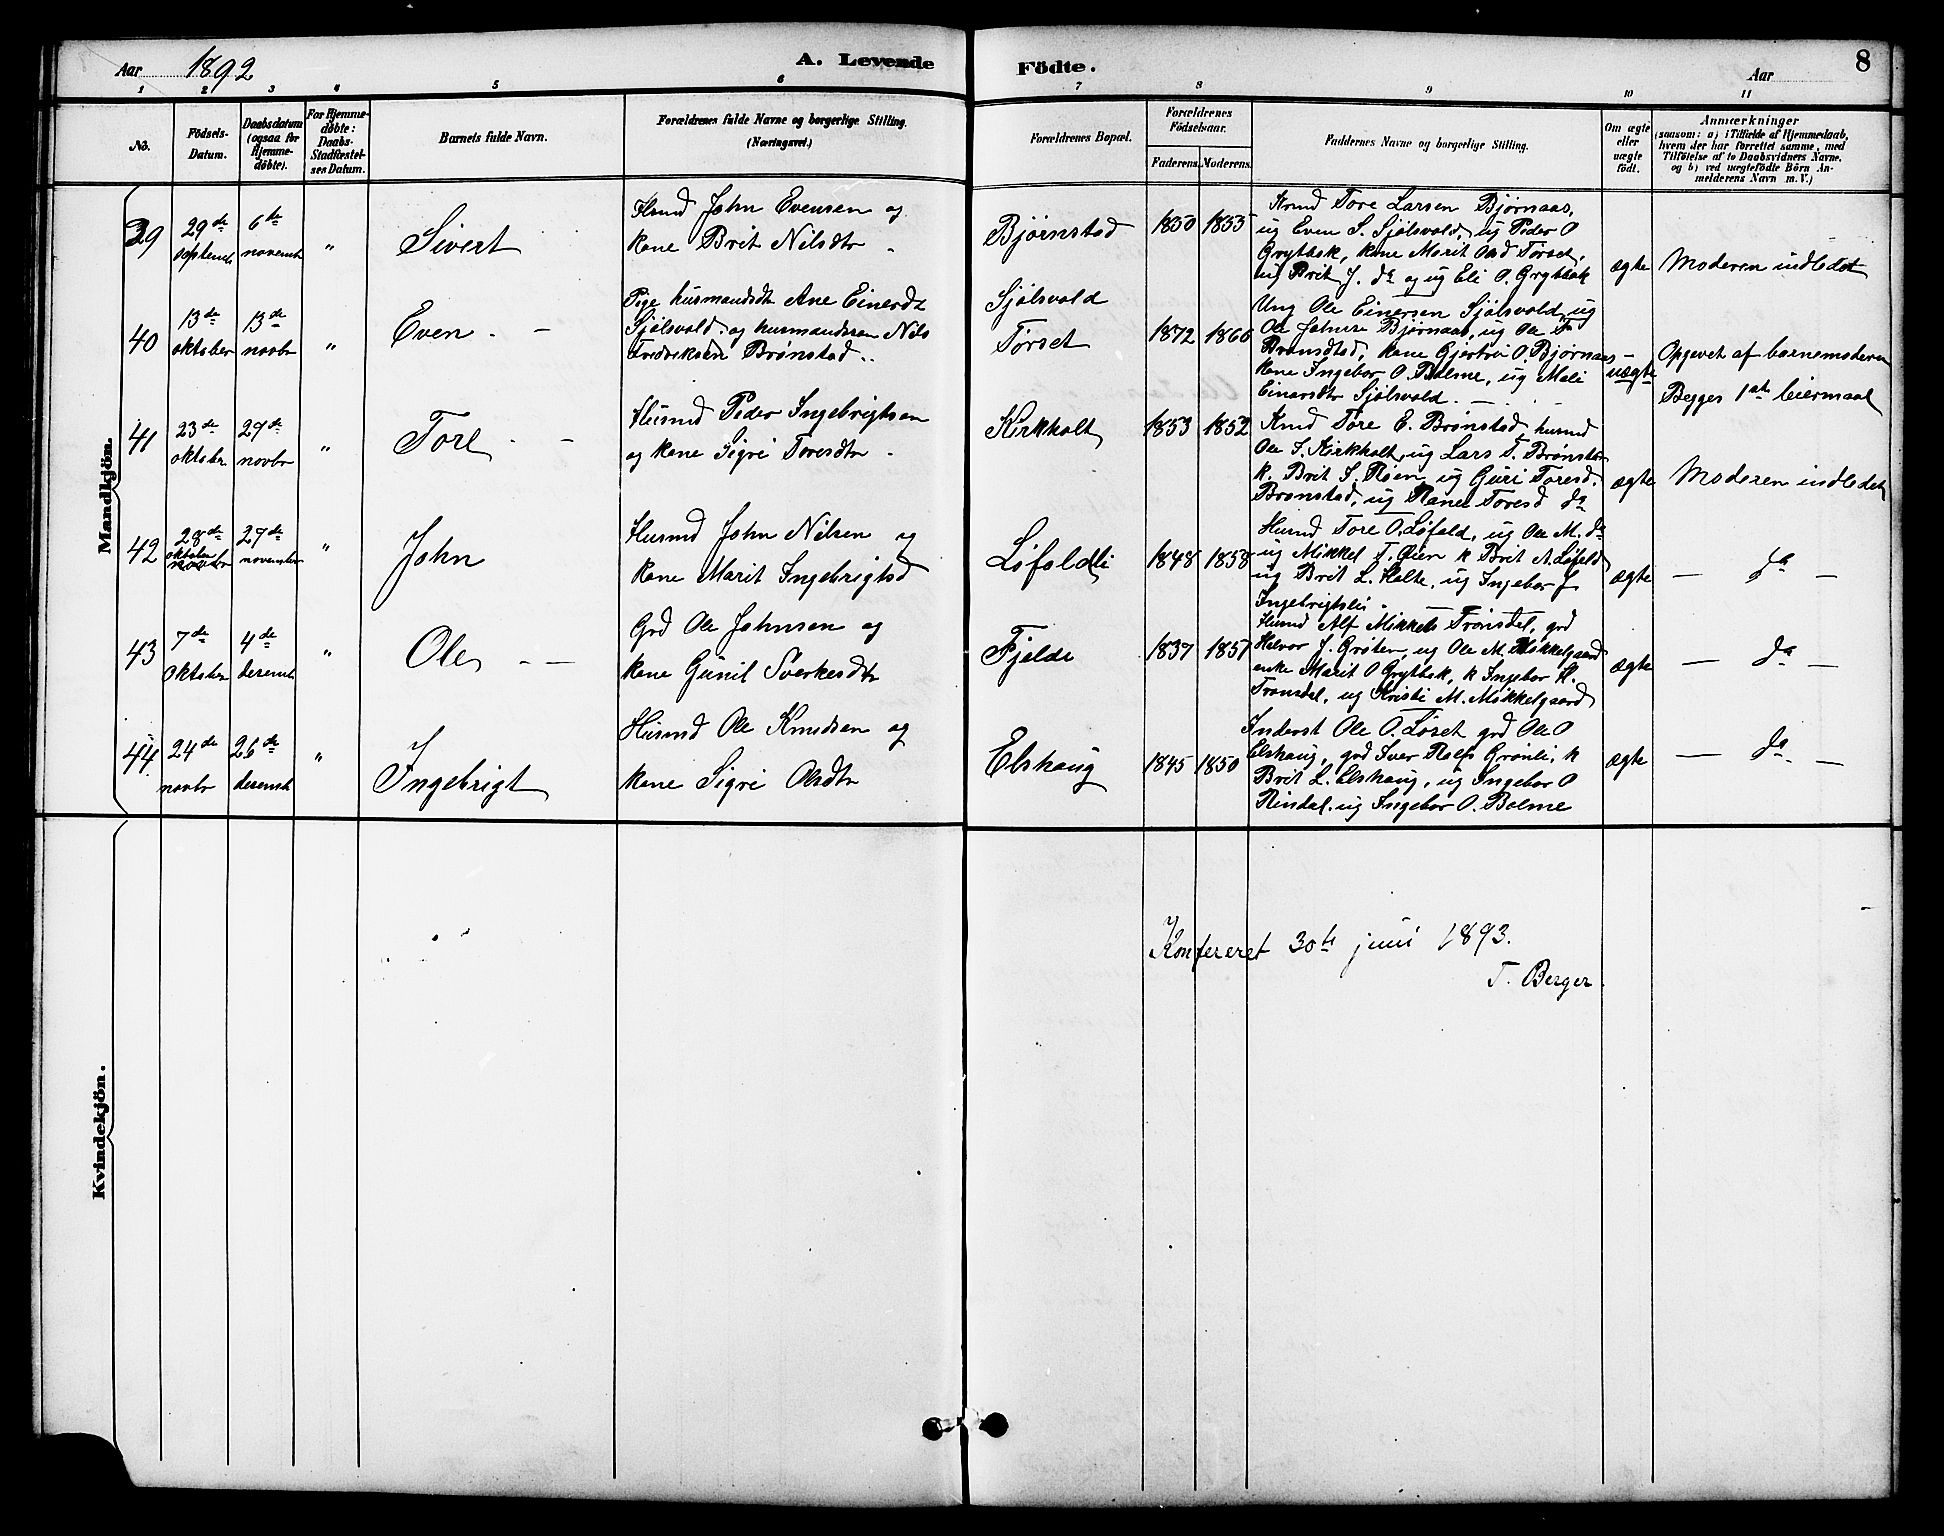 Aar 1892
A. Levende Födte.
Aar
8
1 2 3 4 5 6 7 8 9 10 11
No.
Födsels-Datum.
Daabsdatum (ogsaa for Hjemme-döbte).
For Hjemme-döbte: Daabs-Stadfæstelses Datum.
Barnets fulde Navn.
Forældrenes fulde Navne og borgerlige Stilling. (Næringsvei.)
Forældrenes Bopæl.
Forældrenes Födselsaar.
Faderens. Moderens.
Faddernes Navne og borgerlige Stilling.
Om ægte eller uægte födt.
Anmærkninger
(saasom: a) i Tilfælde af Hjemmedaab, hvem der har forrettet samme, med Tilföielse af to Daabsvidners Navne, og b) ved uægtefödte Börn Anmelderens Navn m. V.)
Mandkjön.
39
29de
septemb
6te
novemb
"
Sivert
Husmd John Evensen og
kone Brit Nilsdtr
Bjørnstad
1850
1855
Kmd Tore Larsen Bjørnaas,
ug Even S. Sjølsvold, ug Peder O
Grytbak, kone Marit Oosd Tørset,
ug Brit J. do og ug Eli O. Grytbak
ægte
Moderen indledet
40
13de
oktober
13de
novbr
"
Even
Pige husmandsdt Ane Einersdt
Sjølsvold og husmandssøn Nils
Fredriksen Brønstad
Sjølsvold
Tørset
1872
1866
Ung Ole Einersen Sjølsvold, ug
Ole Johnsen Bjørnaas, ug Ole F
Brønsdtad, kone Gjertru O. Bjørnaas
kone Ingebor O. Bolme, ug Mali
Einarsdtr Sjølsvold
uægte
Opgevet af barnemoderen
Begges 1ste leiermaal
41
23de
oktober
29de
novbr
"
Tore
Husmd Peder Ingebrigtsen
og kone Sigri Toresdtr
Kirkholt
1853
1852
Kmd Tore E. Brønstad, husmd
Ole I. Kirkholt, ug Lars T. Brønstad
k. Brit I. Røen, ug Guri Toresd.
Brønstad, ug Rane Toresd do
ægte
Moderen indledet
42
28de
oktober
novbr
27de
november
"
John
Husmd John Nilsen og
kone Marit Ingebrigtsd
Løfoldli
1848
1858
Husmd Tore O. Løfald, ug Ole M. do
ug Mikkel T. Øien k Brit A. Løfald
ug Brit L. Holte, ug Ingebor J
Ingebrigtsli
ægte
— do —
43
7de
Oktober
4de
desemb
"
Ole
Grd Ole Johnsen og
kone Gunil Sverkesdtr
Fjelde
1837
1851
Husmd Alf Mikkels Trønsdel, grd
Halvor J. Grøten, ug Ole M. Møkkelgaard
enke Marit O Grytbak, k Ingebor H.
Trønsdal, ug Kristi M. Møkkelgaard
ægte
— do —
44.
24de
novbr
26de
desemb
"
Ingebrigt
Husmd Ole Knudsen og
kone Sigri Olsdtr
Elshaug
1845
1850
Inderst Ole O. Løset grd Ole O
Elshaug, grd Iver Rolfs Grønli, k
Brit L. Elshaug, ug Ingebor O
Rindal, ug Ingebor O. Bolme
ægte
— do. —
Kvindekjön.
Konfereret 30te juni 1893.
T. Berger.